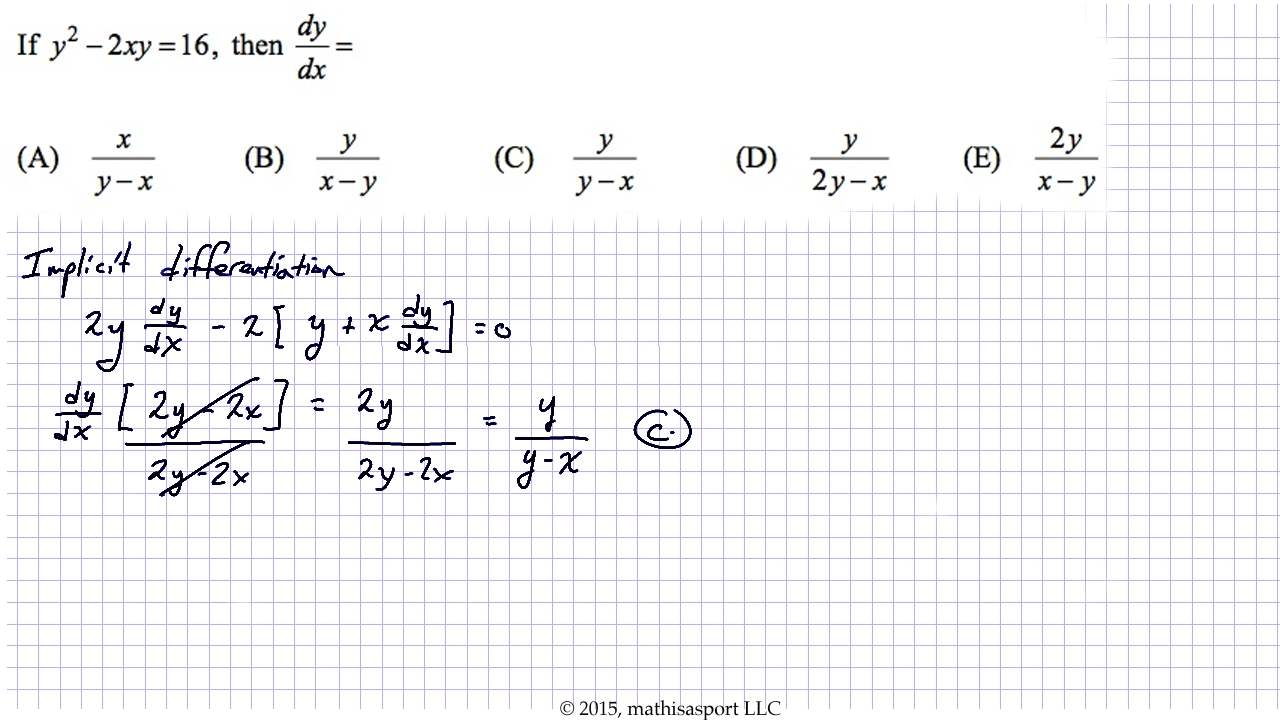 If y² – 2xy = 16, then dy/dx =
(A) x/(y – x) (B) y/(x – y) (C) y/(y – x) (D) y/(2y – x) (E) 2y/(x – y)
Implicit differentiation
2y dy/dx - 2[y + x dy/dx] = 0
dy/dx [2y - 2x]/(2y - 2x) = 2y/(2y - 2x) = y/(y - x) C.
© 2015, mathisasport LLC